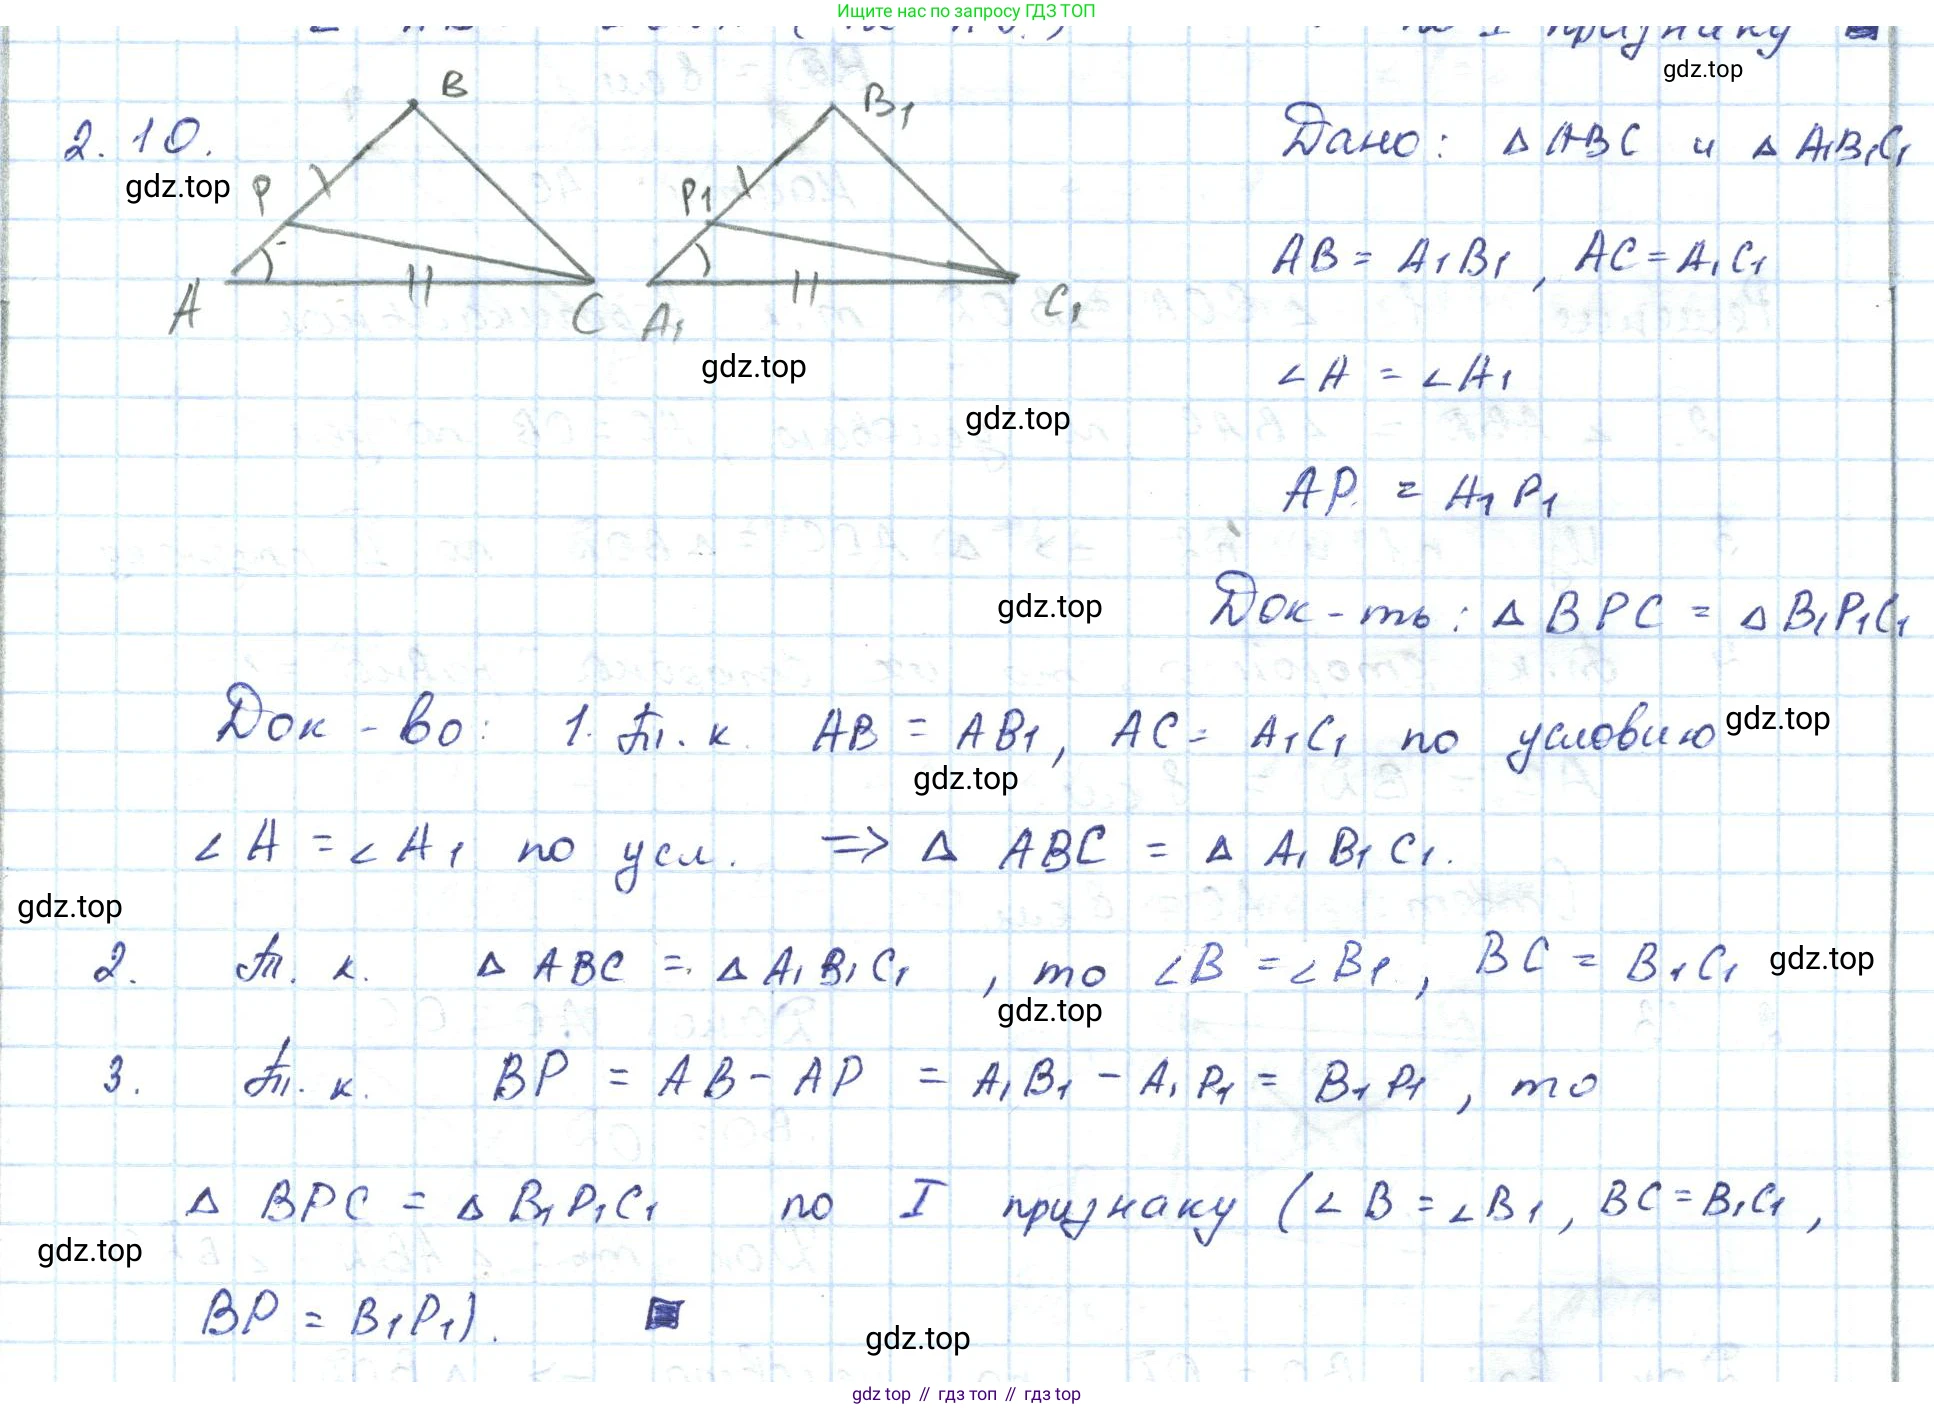 Ищите нас по запросу ГДЗ ТОП
по I признаку
gdz.top
2.10.
gdz.top
B
P
A
C
B₁
P₁
A₁
C₁
Дано: △ ABC и △ A₁B₁C₁
AB = A₁B₁, AC = A₁C₁
gdz.top
∠A = ∠A₁
gdz.top
AP = A₁P₁
gdz.top
Док-ть: △ BPC = △ B₁P₁C₁
Док-во: 1. Т.к. AB = AB₁, AC = A₁C₁ по условию
gdz.top
gdz.top
∠A = ∠A₁ по усл. => △ ABC = △ A₁B₁C₁.
gdz.top
2. Т.к. △ ABC = △ A₁B₁C₁, то ∠B = ∠B₁, BC = B₁C₁
gdz.top
gdz.top
3. Т.к. BP = AB - AP = A₁B₁ - A₁P₁ = B₁P₁, то
△ BPC = △ B₁P₁C₁ по I признаку (∠B = ∠B₁, BC = B₁C₁,
gdz.top
BP = B₁P₁).
gdz.top
gdz top // гдз топ // гдз top